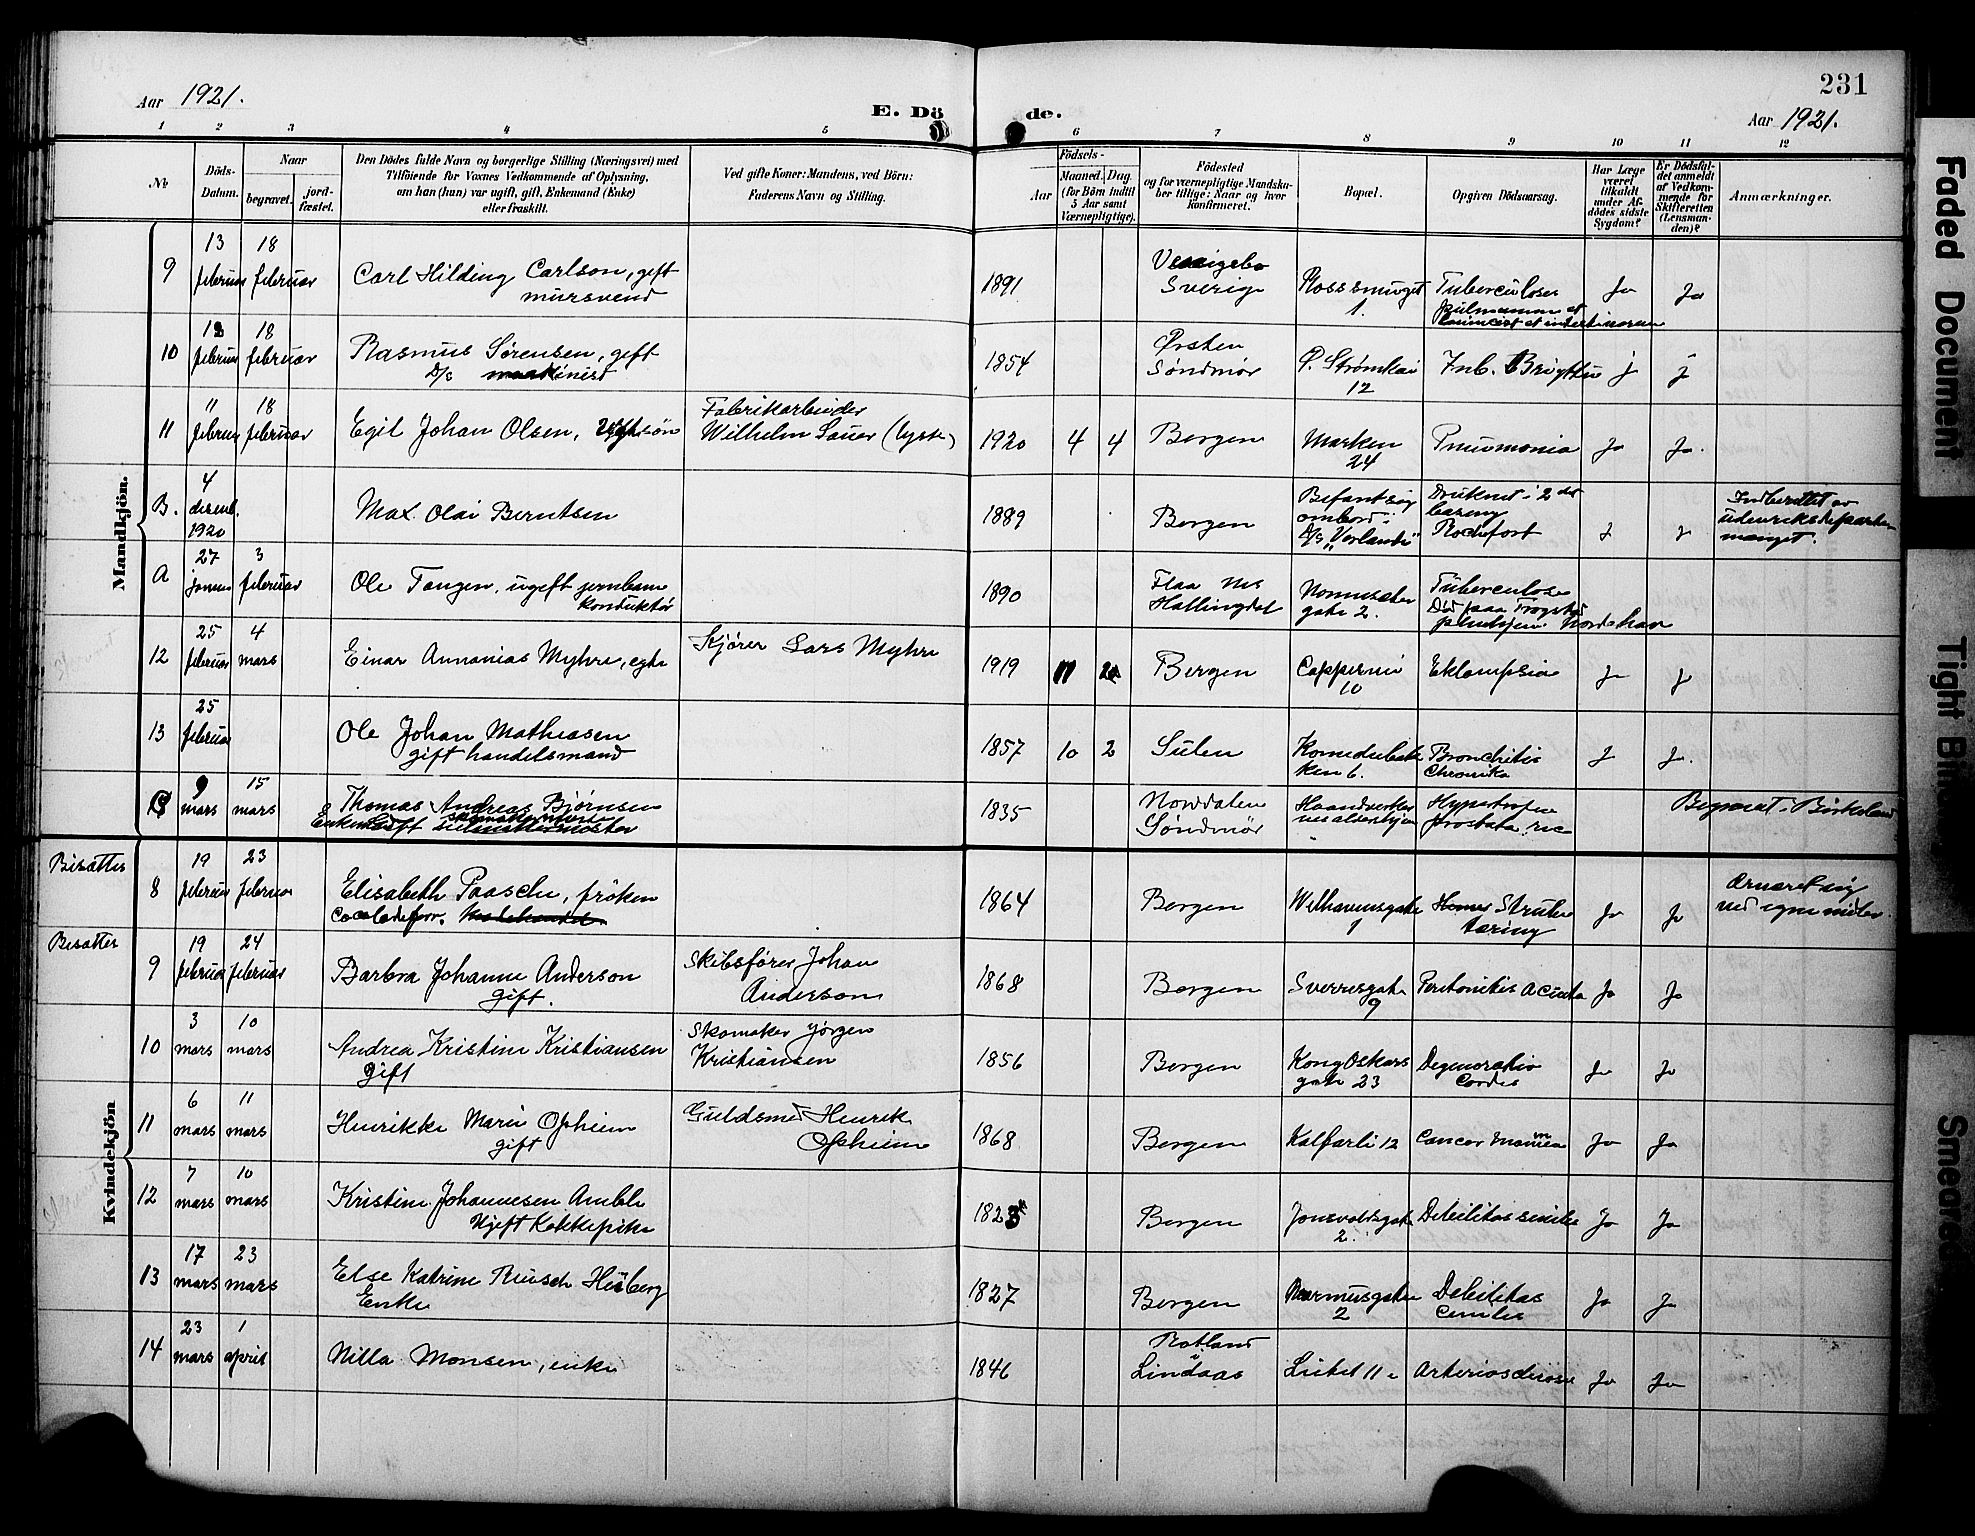 231
Aar 1921.
E. Dö de.
Aar 1921.
1 2 3 4 5 6 7 8 9 10 11 12
№
Döds-Datum.
Naar
begravet.
jord-fæstet.
Den Dödes fulde Navn og borgerlige Stilling (Næringsvei) med
Tilföiende for Voxnes Vedkommende af Oplysning,
om han (hun) var ugift, gift, Enkemand (Enke)
eller fraskilt.
Ved gifte Koner: Mandens, ved Börn:
Faderens Navn og Stilling.
Födsels-
Aar
Maaned.
Dag.
(for Börn indtil
5 Aar samt
Værnepligtige).
Födested
og for værnepligtige Mandska-
ber tillige: Naar og hvor
konfirmeret.
Bopæl.
Opgiven Dödsaarsag.
Har Læge
været
tilkaldt
under Af-
dödes sidste
Sygdom?
Er Dödsfal-
det anmeldt
af Vedkom-
mende for
Skifteretten
(Lensman-
den)?
Anmærkninger.
Mandkjön.
9 13 februar 18 februar Carl Hilding Carlson, gift
mursvend
1891 Sverige Rossesmuget 1. Tuberculose Ja Ja
10 februar 18 februar Rasmus Sørensen, gift
D/s maskinist
1854 Ørsten Søndmør Ø. Strømkai 12 j j
11 11 februar 18 februar Egil Johan Olsen,
Fabrikarbeider Wilhelm Sauer (tysk)
1920 4 4 Bergen Marken 24 Pneumonia Ja Ja.
B. 4 desemb. 1920 Max Olai Berntsen
1889 Bergen Befant sig ombord i D/s Druknet i 2det Rochefort j j Indberettet av utenriksdepartementet.
A 27 januar 3 februar Ole Tangen, ugift jernbane
konduktør
1890 Flaa Nes Hallingdal gate 2. Tuberculose
12 25 februar 4 mars Einar Annanias Myhre, egte
Kjører Lars Myhre
1919 11 Bergen Cappesmui 10 Eklampsia Ja j
13 25 februar Ole Johan Mathiasen
gift handelsmand
1857 10 2 Sulen 6. Bronchitis Chronika j j.
C 9 mars 15 mars Thomas Andreas Bjørnsen
1835 Norddalen Søndmør Begravet i Birkeland
Kvindekjön
Bisættes 8 19 februar 23 februar Elisabeth Paasche, frøken
1864 Bergen Welhavensgate 1 Struketæring Ja Ja Ernæret sig ved egne midler.
Bisættes 9 19 februar 24 februar Barbra Johanne Anderson
gift.
Skibsfører Johan Anderson
1868 Bergen Sverresgate 9 Peritonitis Acuta Ja Ja
10 3 mars 10 mars Andrea Kristine Kristiansen
Gift
Skomaker Jørgen Kristiansen
1856 Bergen Kong Oskars gate 23 Degeneratio Cordis Ja Ja
11 6 mars 11 mars Henrikke Marie Opheim
gift
Guldsmed Henrik Opheim
1868 Bergen Kalfarli 12 Cancer Mamma Ja Ja
12 7 mars 10 mars Kristine Johannesen Amble
Ugift Kokkepike
Bergen Jonsvoldsgate 2. Debilitas senilis Ja Ja
13 17 mars 23 mars Else Katrine Reusch Heiberg
Enke
1827 Bergen 2 Debilitas Cenilis Ja Ja
14 23 mars 1 april Nilla Monsen, enke
1846 Lindaas Arteriosclerose Ja Ja
Faded Document
Tight
Smeared